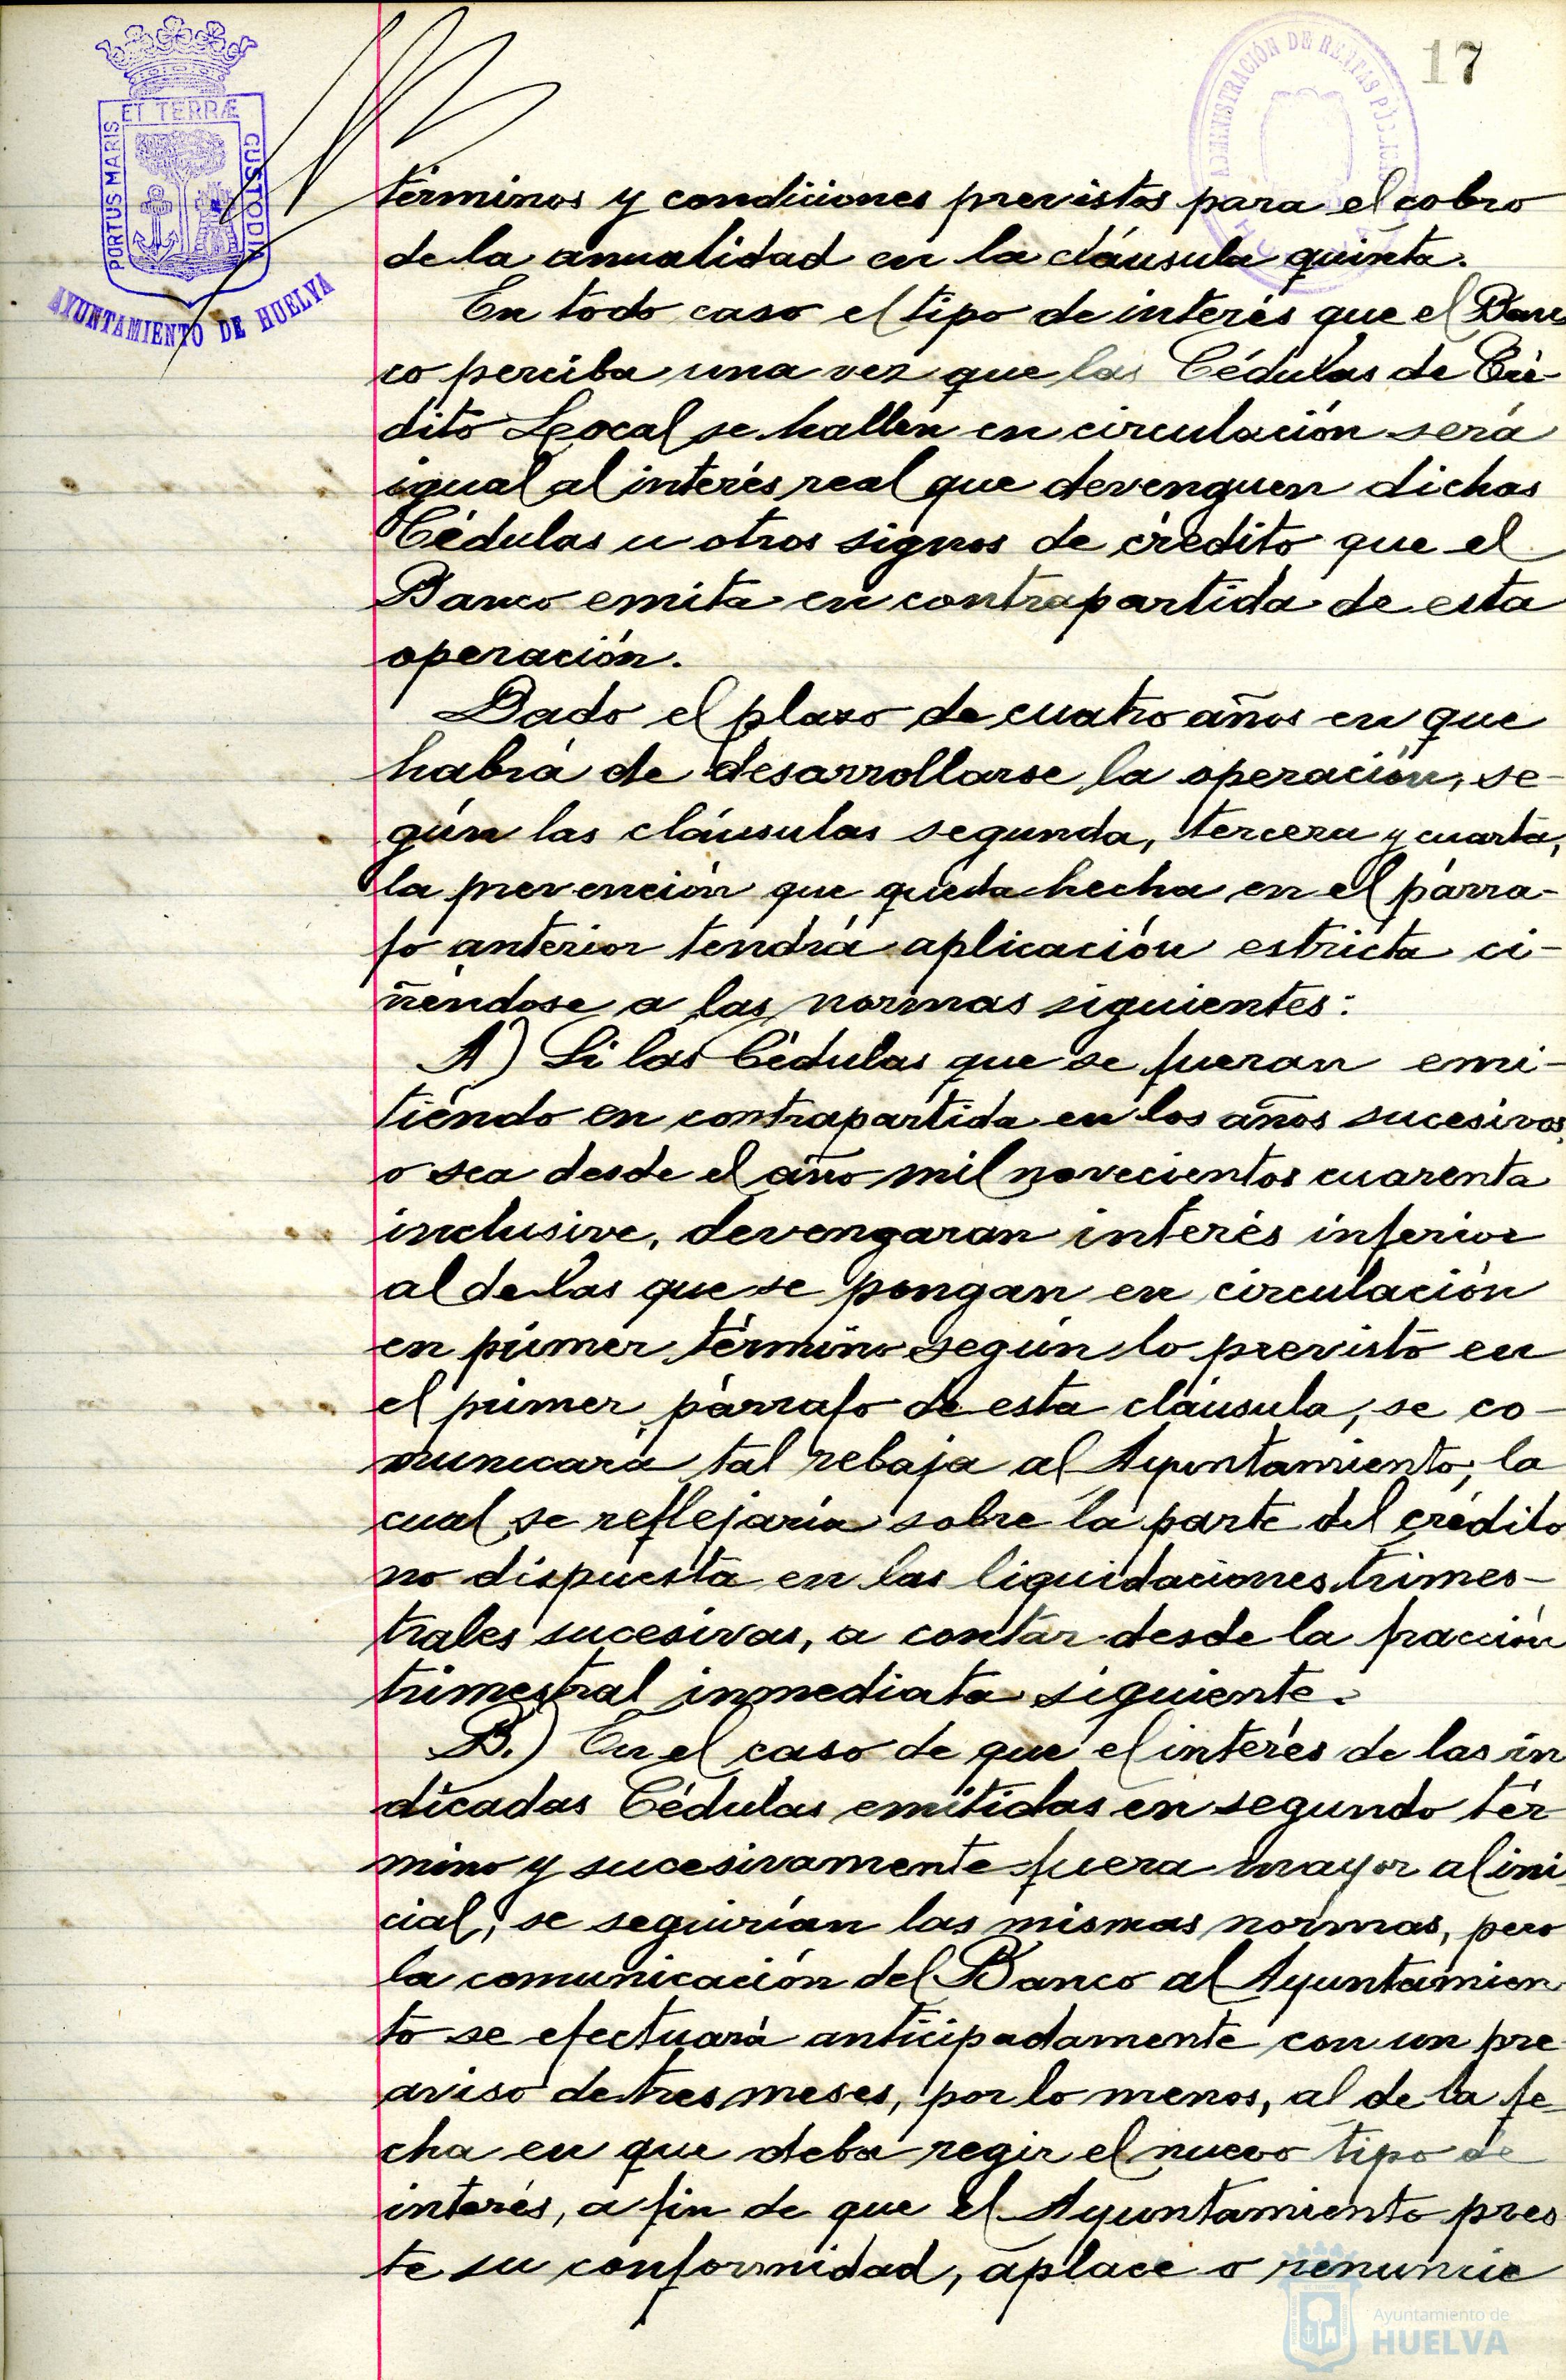 17
ADMINISTRACIÓN DE RENTAS PÚBLICAS
PORTUS MARIS ET TERRÆ CUSTODIA
AYUNTAMIENTO DE HUELVA
términos y condiciones previstos para el cobro
de la anualidad en la cláusula quinta.
En todo caso el tipo de interés que el Ban
co perciba una vez que las Cédulas de Cré-
dito Local se hallen en circulación será
igual al interés real que devenguen dichas
Cédulas u otros signos de crédito que el
Banco emita en contrapartida de esta
operación.
Dado el plazo de cuatro años en que
habrá de desarrollarse la operación, se-
gún las cláusulas segunda, tercera y cuarta,
la prevención que queda hecha en el párra-
fo anterior tendrá aplicación estricta ci-
ñéndose a las normas siguientes:
A) Si las Cédulas que se fueran emi-
tiendo en contrapartida en los años sucesivos,
o sea desde el año mil novecientos cuarenta
inclusive, devengaran interés inferior
al de las que se pongan en circulación
en primer término según lo previsto en
el primer párrafo de esta cláusula, se co-
municará tal rebaja al Ayuntamiento, la
cual se reflejaría sobre la parte del crédito
no dispuesta en las liquidaciones trimes-
trales sucesivas, a contar desde la fracción
trimestral inmediata siguiente.
B.) En el caso de que el interés de las in
dicadas Cédulas emitidas en segundo tér
mino y sucesivamente fuera mayor al ini
cial, se seguirían las mismas normas, pero
la comunicación del Banco al Ayuntamien
to se efectuará anticipadamente con un pre
aviso de tres meses, por lo menos, al de la fe-
cha en que deba regir el nuevo tipo de
interés, a fin de que el Ayuntamiento pres
te su conformidad, aplace o renuncie
Ayuntamiento de
HUELVA